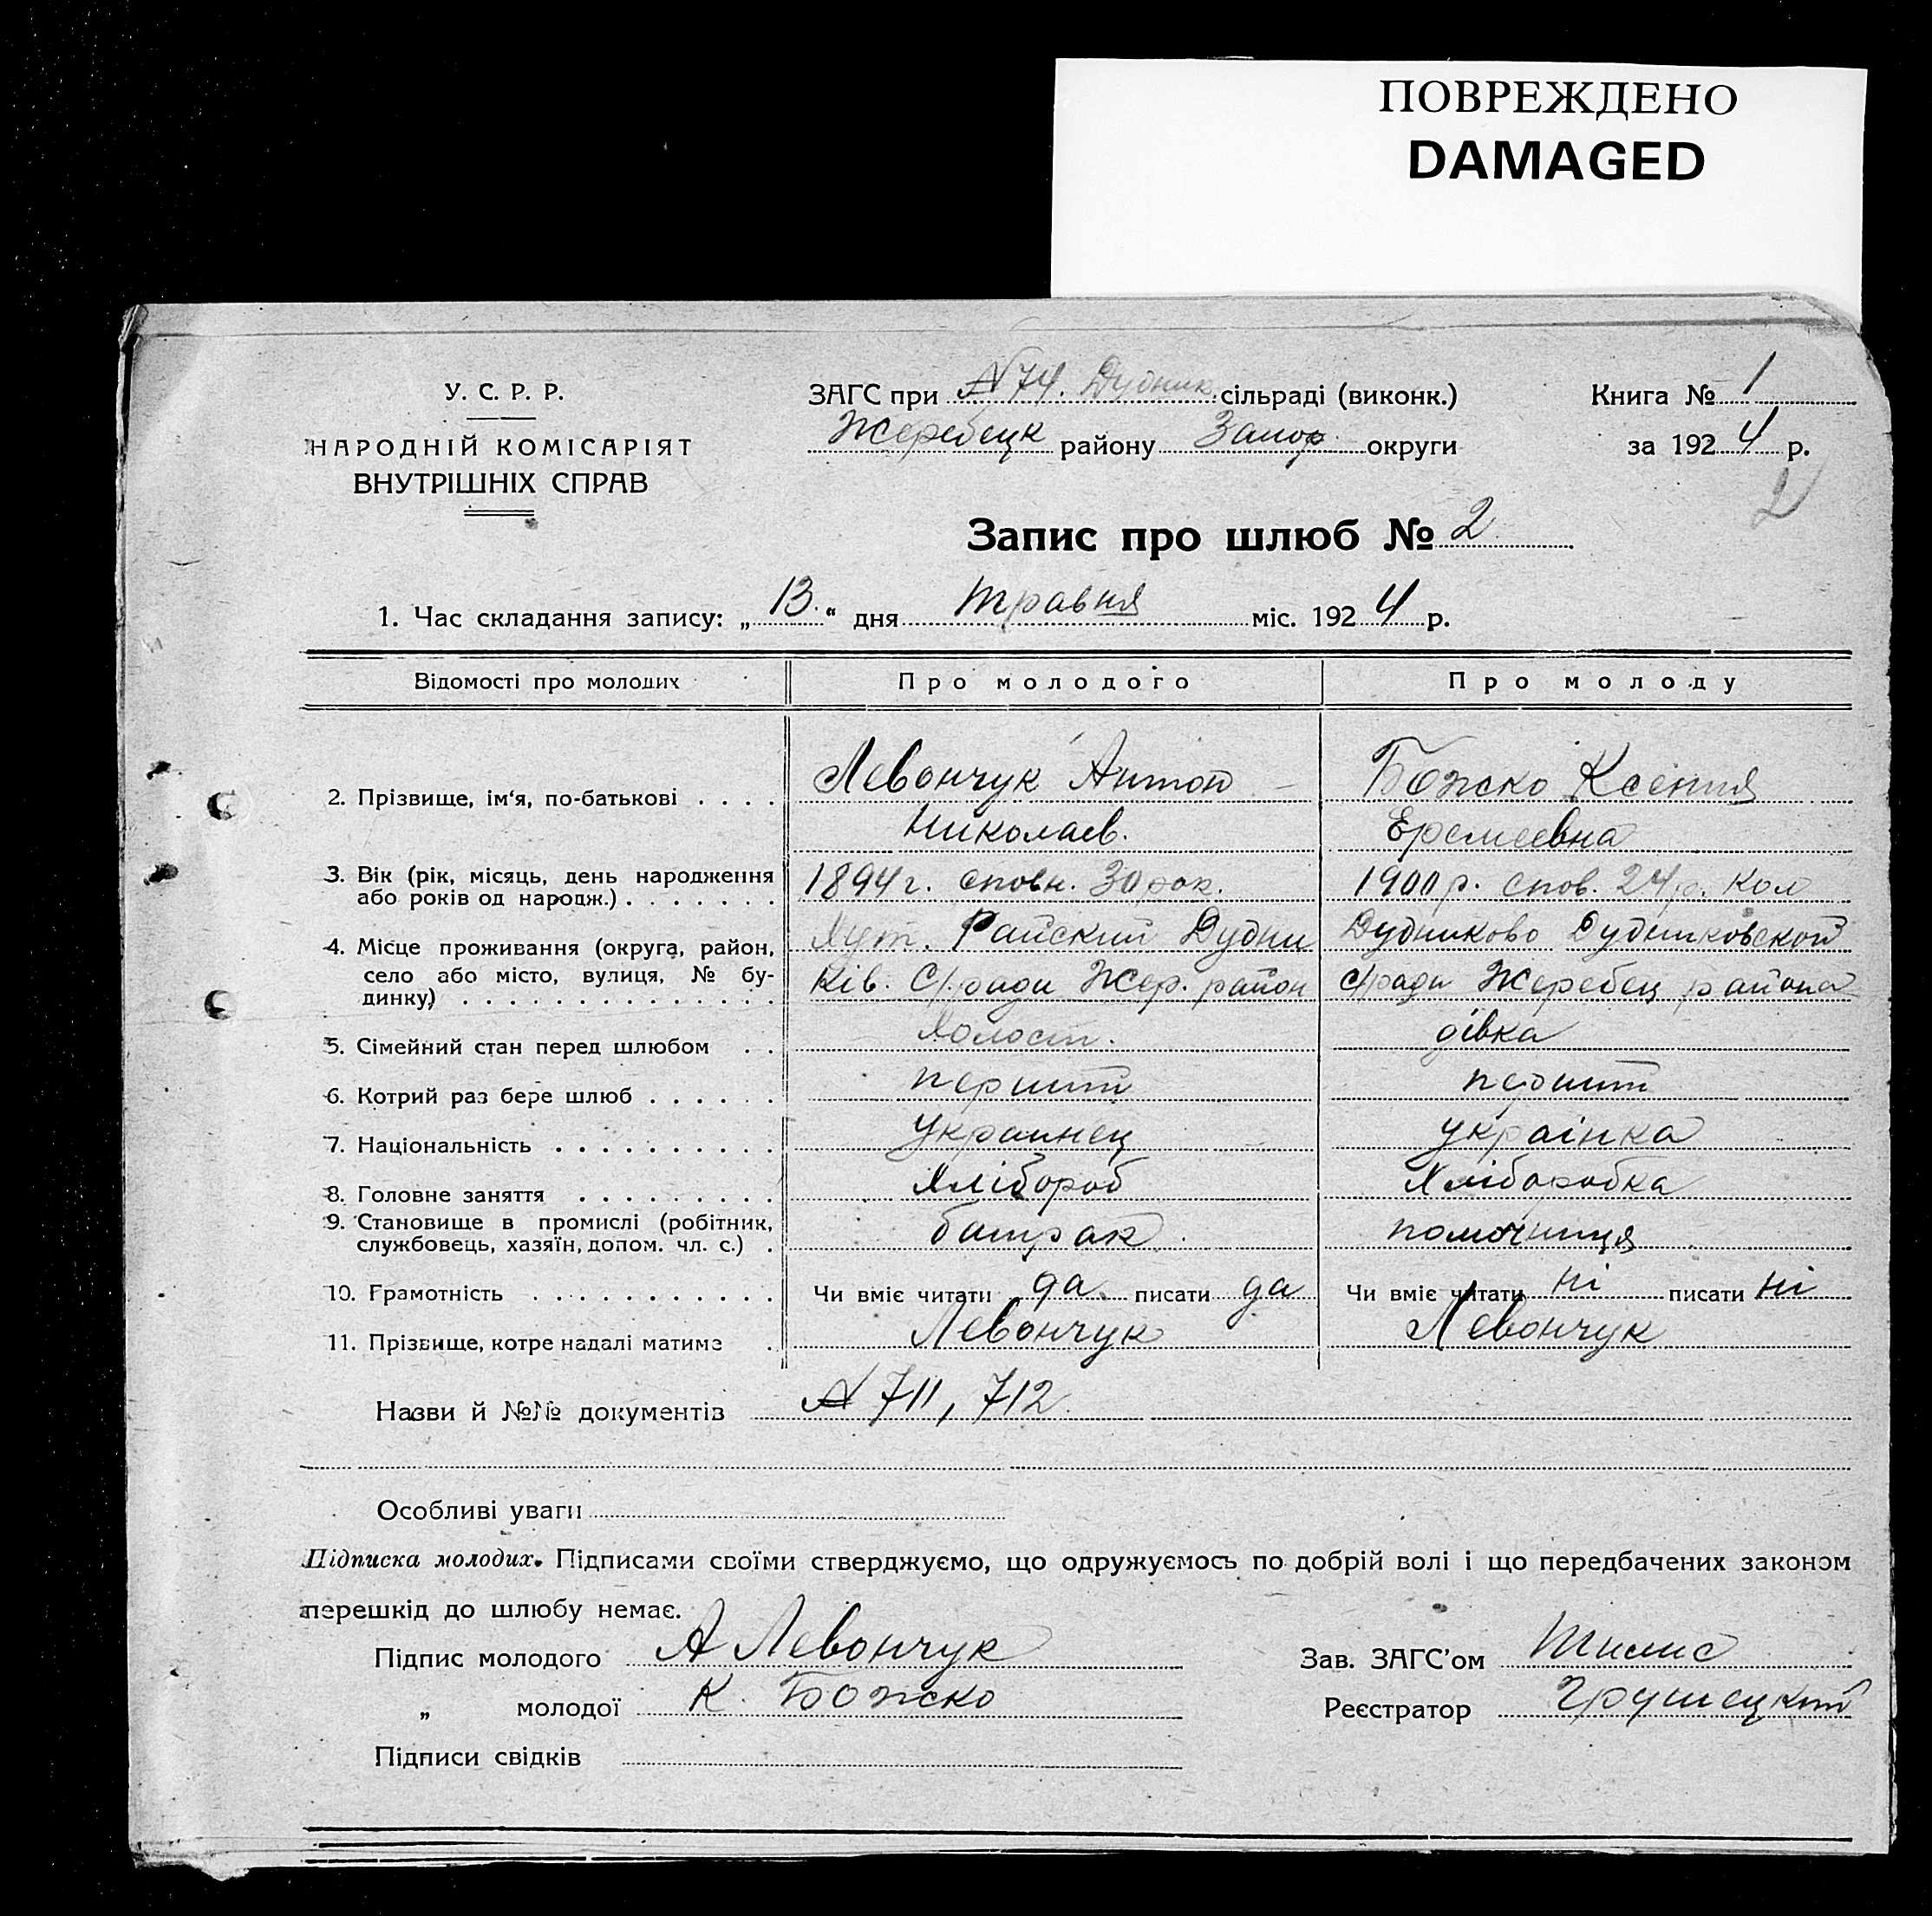 ПОВРЕЖДЕНО
DAMAGED
У. С. Р. Р.
НАРОДНІЙ КОМІСАРІЯТ
ВНУТРІШНІХ СПРАВ
ЗАГС при №74. Дудник. сільраді (виконк.)
Жеребецк району Запор. округи
Книга № 1
за 1924 р.
2
Запис про шлюб № 2
1. Час складання запису: „13.“ дня травня міс. 1924 р.
Відомості про молодих
Про молодого
Про молоду
2. Прізвище, ім'я, по-батькові . . . .
Левончук Антон
Николаев.
Божско Ксения
Еремеевна
3. Вік (рік, місяць, день народження
або років од народж.) . . . . . . .
1894 г. сповн. 30 рок.
1900 р. спов. 24 р. Кол
4. Місце проживання (округа, район,
село або місто, вулиця, № бу-
динку) . . . . . . . . . . . . . .
Хут. Райский Дудни
ків. С/ради Жер. район
Дудниково Дудниковской
с/ради Жеребец района
5. Сімейний стан перед шлюбом . .
холост.
дівка
6. Котрий раз бере шлюб . . . . . .
перший
перший
7. Національність . . . . . . . . . .
Украинец
українка
8. Головне заняття . . . . . . . . .
Хлібороб
Хліборобка
9. Становище в промислі (робітник,
службовець, хазяїн, допом. чл. с.) .
батрак
помочниця
10. Грамотність . . . . . . . . . . .
Чи вміє читати да. писати да
Чи вміє читати ні писати ні
11. Прізвище, котре надалі матиме .
Левончук
Левончук
Назви й №№ документів № 711, 712.
Особливі уваги
Підписка молодих. Підписами своїми стверджуємо, що одружуємось по добрій волі і що передбачених законом
перешкід до шлюбу немає.
Підпис молодого А Левончук
Зав. ЗАГС'ом
„ молодої К. Божско
Реєстратор Грушецкий
Підписи свідків